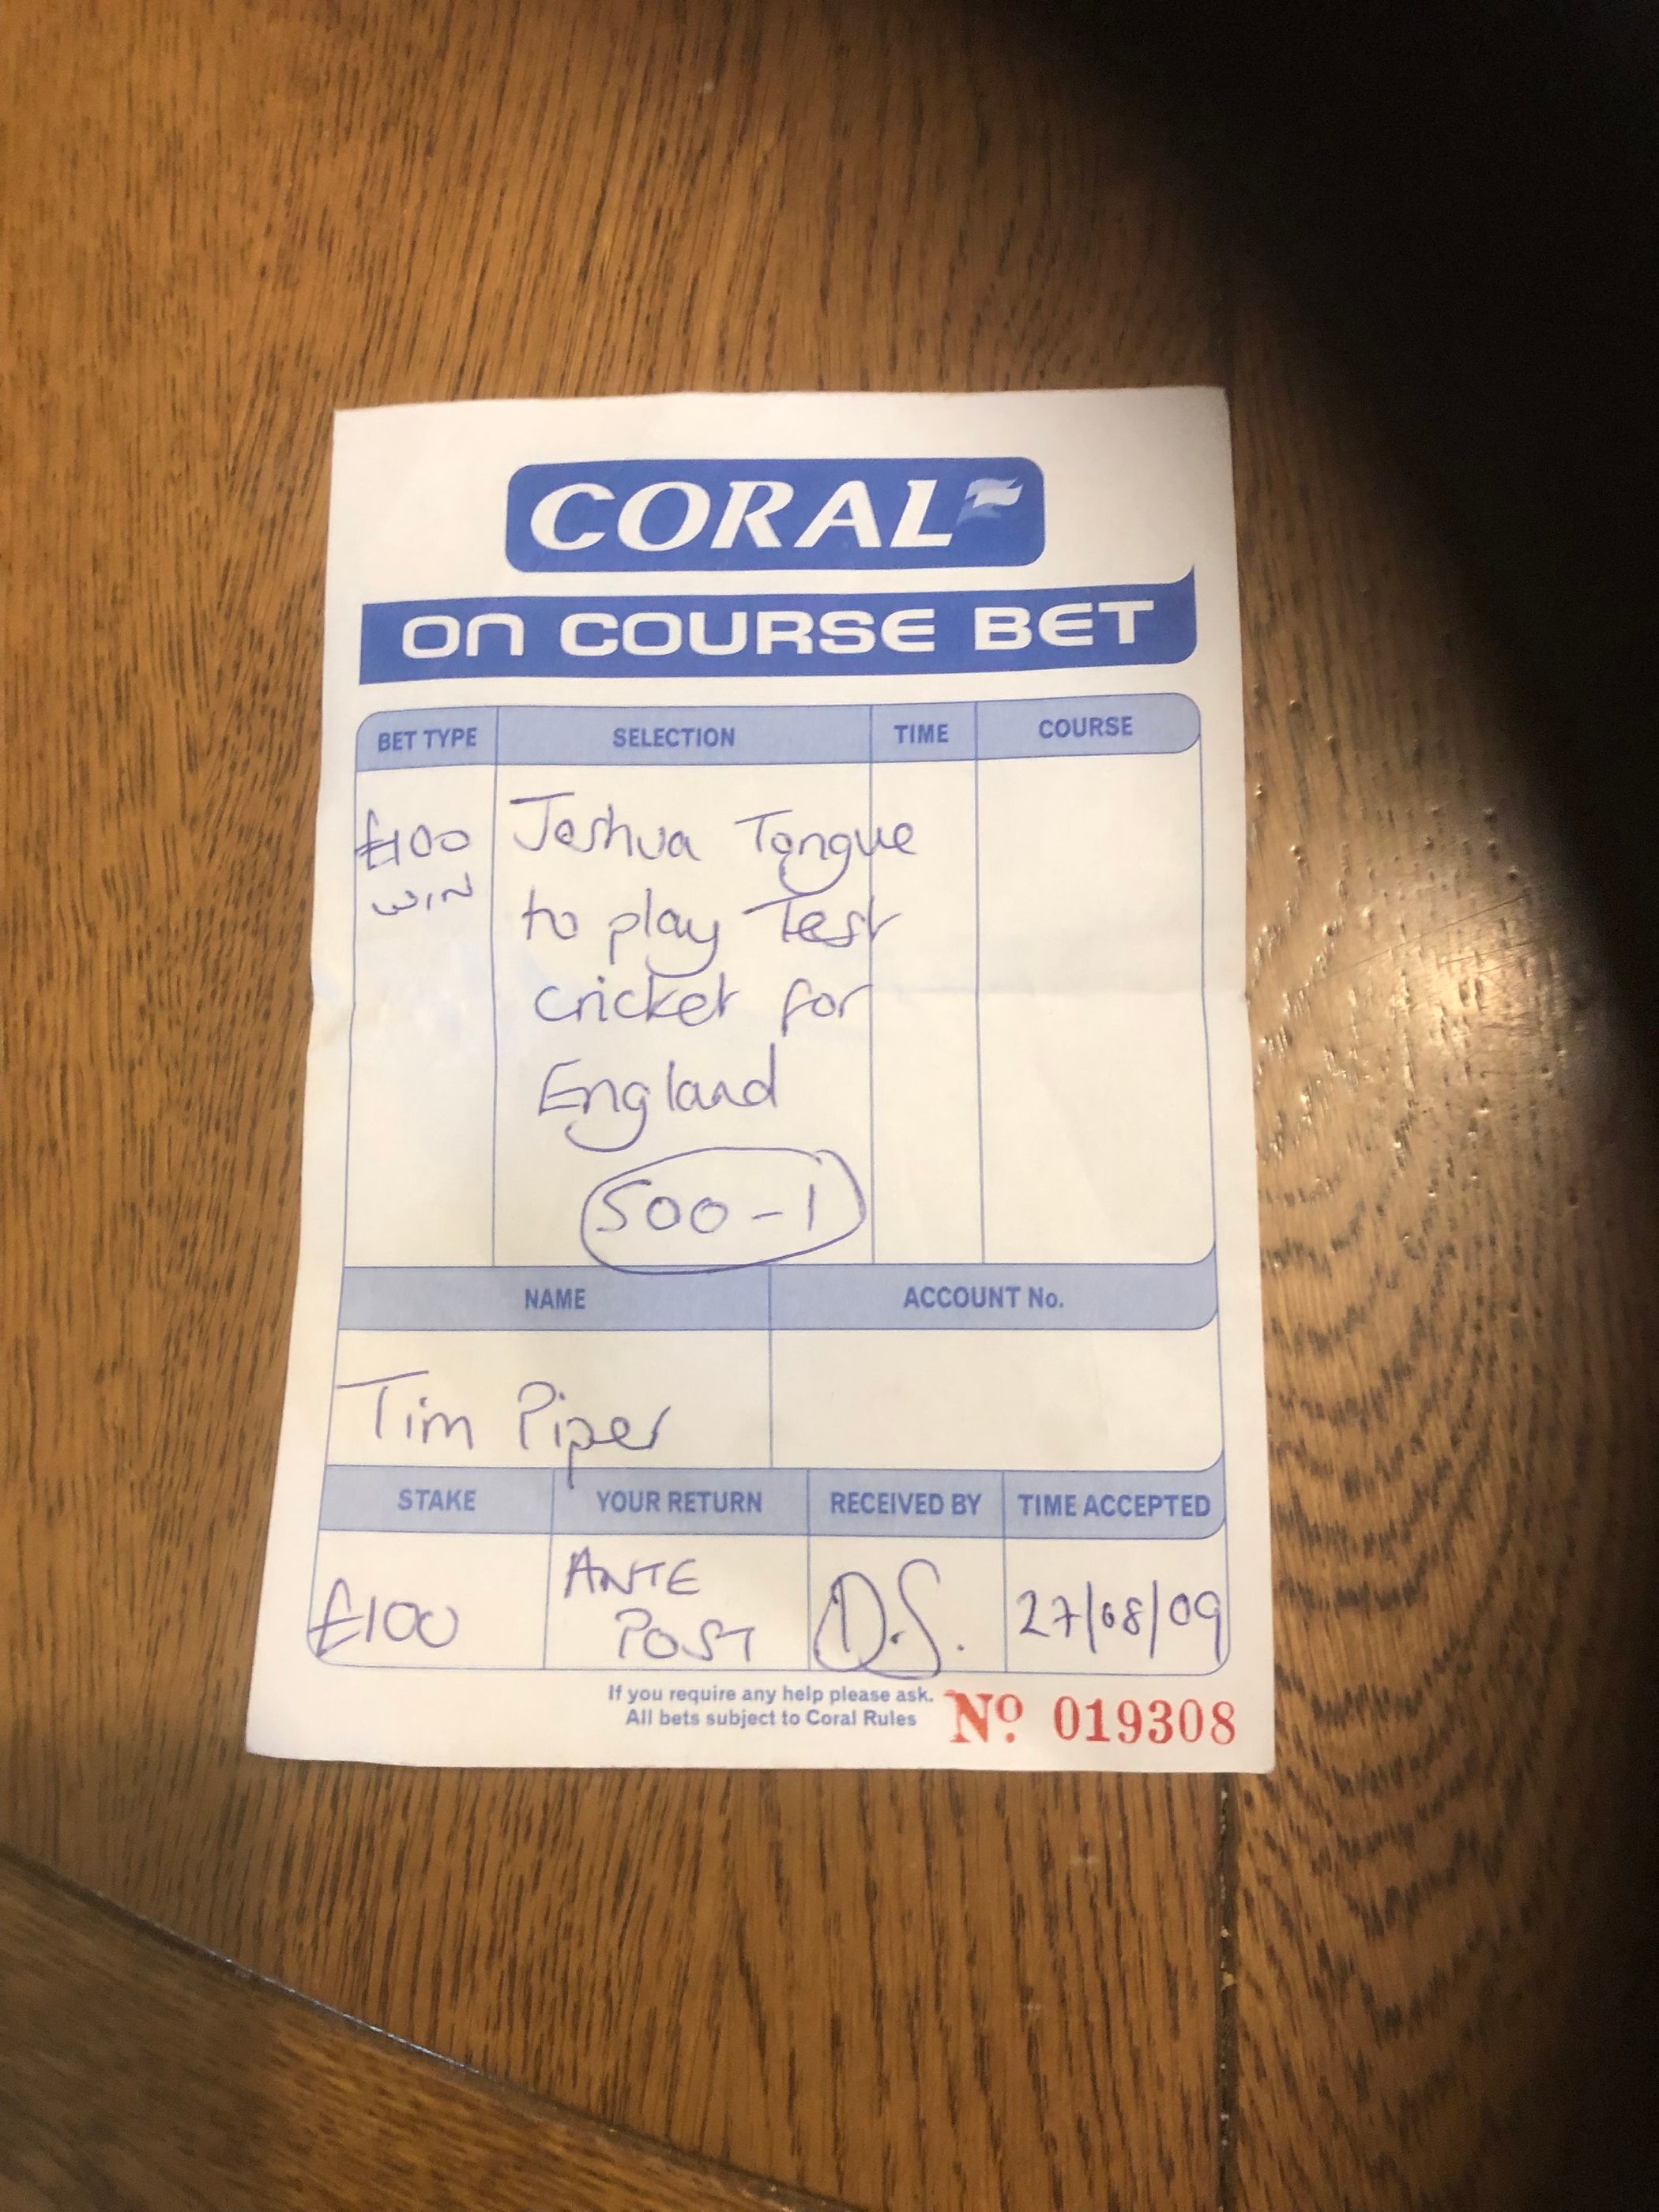 CORAL
ON COURSE BET
BET TYPE SELECTION TIME COURSE
£100 Joshua Tongue
WIN to play Test
cricket for
England
500-1
NAME ACCOUNT No.
Tim Piper
STAKE YOUR RETURN RECEIVED BY TIME ACCEPTED
£100 ANTE POST D.S. 27/08/09
If you require any help please ask.
All bets subject to Coral Rules
No. 019308